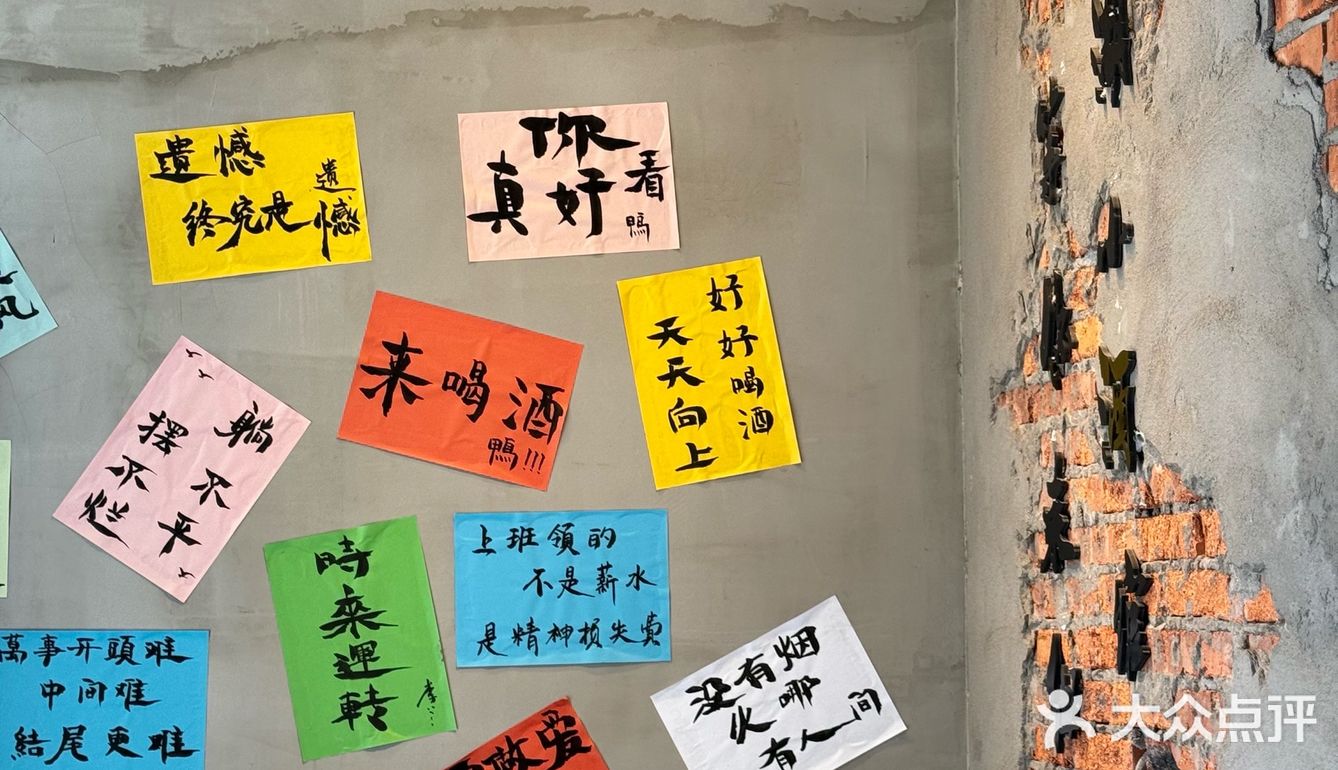 遺憾
終究是
遺憾
你
真好看
鴨
风
来喝酒
鴨!!!
好好喝酒
天天向上
躺不平
摆不烂
時來運轉
上班領的
不是薪水
是精神损失費
萬事开頭难
中间难
結尾更难
没有烟
火哪
有人间
做爱
大众点评